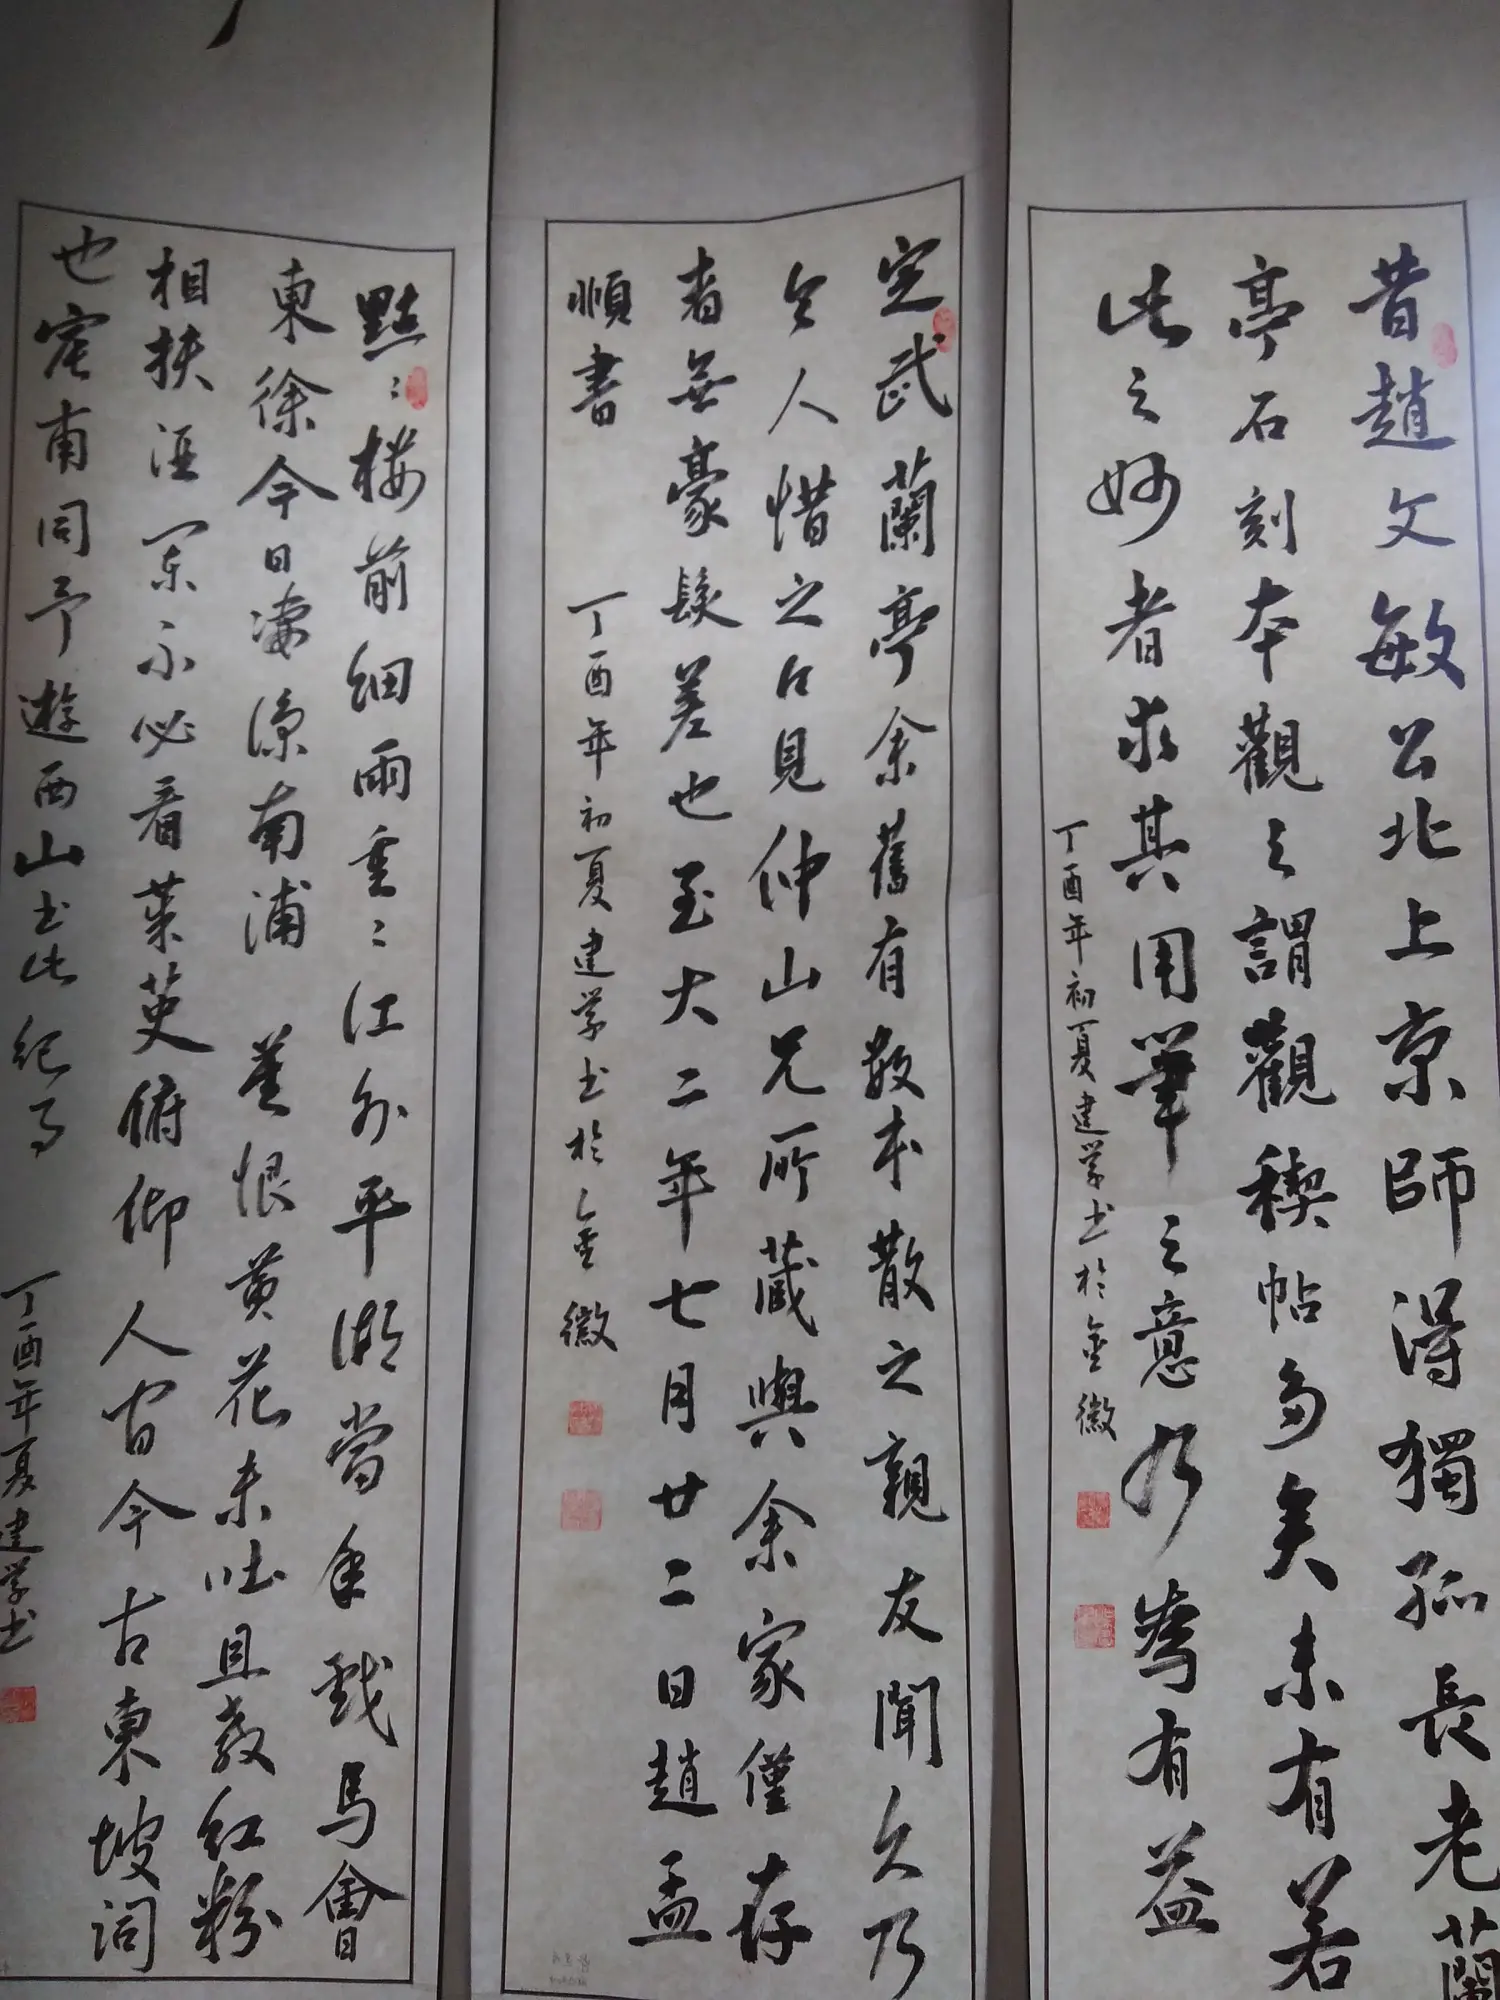 昔趙文敏公北上京師得獨孤長老蘭
亭石刻本觀之謂觀稧帖多矣未有若
此之妙者求其用筆之意乃為有益
丁酉年初夏建学书於金徽
定武蘭亭余舊有數本散之親友聞久乃
令人惜之只見仲山兄所藏與余家僅存
者無豪髮差也至大二年七月廿二日趙孟
順書
丁酉年初夏建学书於金徽
點〻樓前細雨重〻江外平湖當年戲馬會
東徐今日凄涼南浦 莫恨黄花未吐且教紅粉
相扶酒闌不必看茱萸俯仰人間今古東坡詞
也 甫同予遊西山书此紀事
丁酉年夏建学书